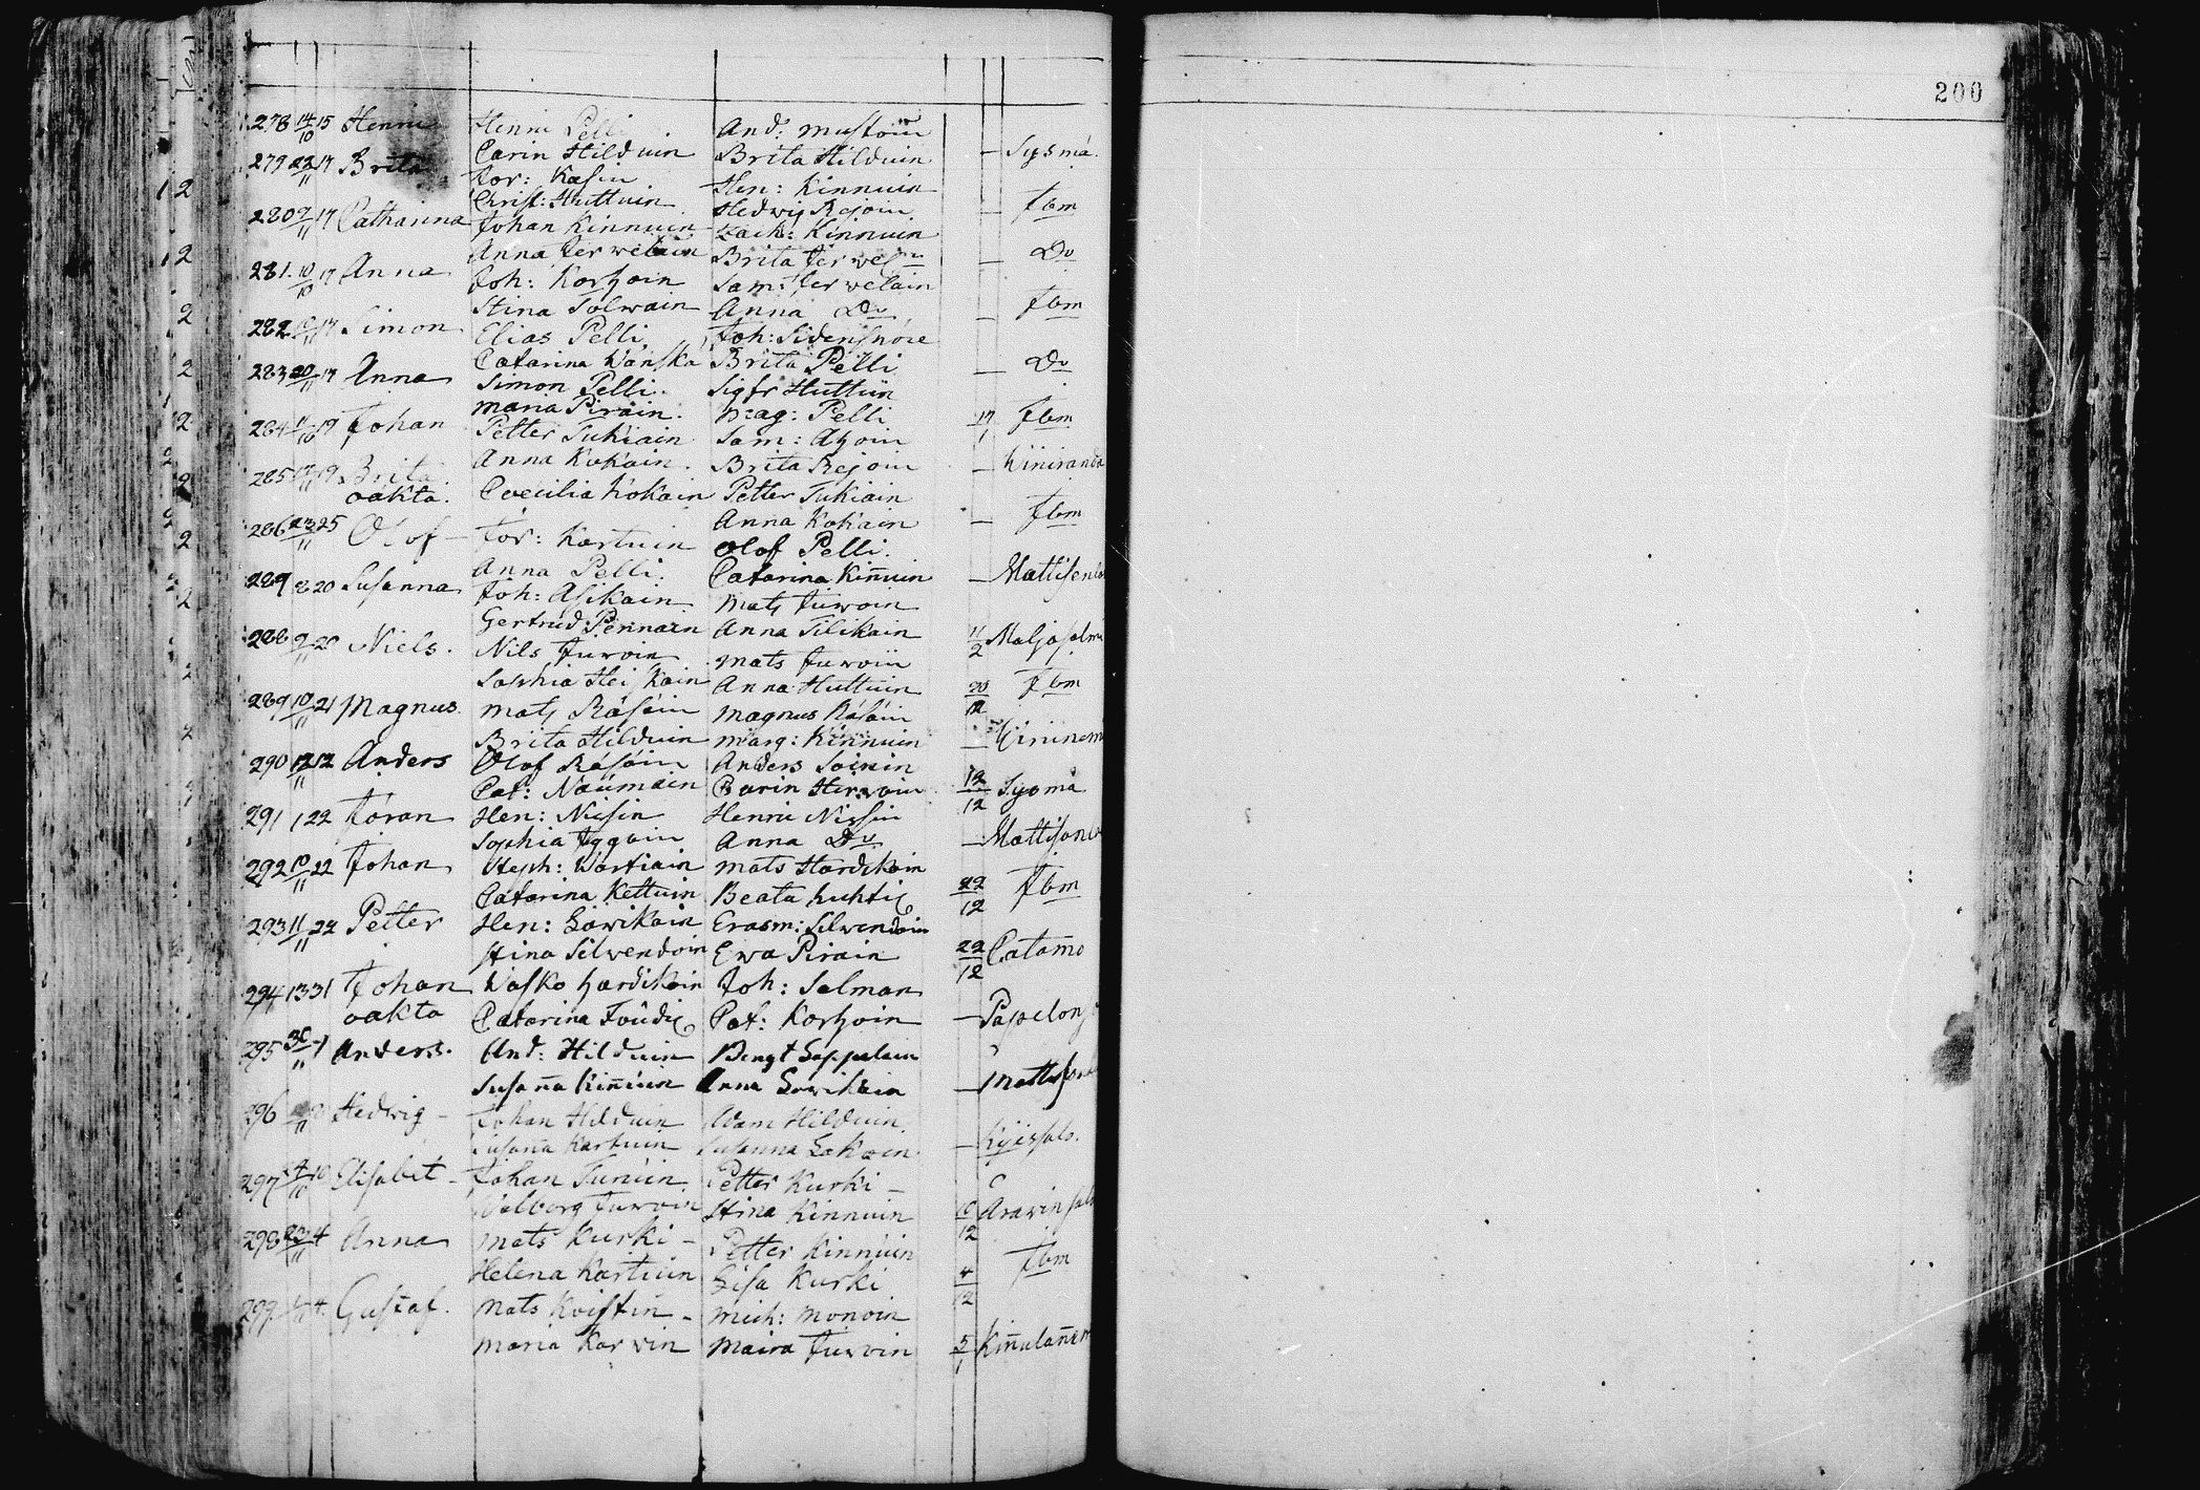 200
278 14/10 15 Henric Henric Pelli And: Mustoin
Carin Hilduin Brita Hilduin — Sysmä.
279 17 Brita Jör: Kasin Hen: Kinnuin
Christ: Huttuin Hedwig Rejoin — Jbm
280 9/11 17 Catharina Johan Kinnuin Zach: Kinnuin
Anna Jerweläin Brita — Do
281. 10/10 17 Anna Joh: Korhoin Sam: Jerweläin
Stina Tolwain Anna Do — Jbm
282 17 Simon Elias Pelli, Joh: Sidensnöre
Catarina Wänskä Brita Pelli — Do
283 20/11 17 Anna Simon Pelli. Sigfr Huttuin
Maria Piräin. Mag: Pelli 17/1 Jbm
284 19 Johan Petter Tukiain Sam: Ahoin
Anna Kokain. Brita Rejoin — Kiiniranda
285 19 Brita Coecilia Kokain Petter Tukiain
oäkta. Anna Kokain — Jbm
286 23/11 25 Olof — Jör: Kartuin Olof Pelli.
Anna Pelli. Catarina Kiñuin — Mattisen
287 8 20 Susanna Joh: Asikain Mats Jurvoin
Gertrud Pennain Anna Tilikain 11/2 Maljasalm
288 9/11 20 Niels. Nils Juvoin Mats Juvoin
Sophia Heiskain Anna Huttuin 20/12 Jbm
289 10/11 21 Magnus. Mats Räsäin Magnus Räsäin
Brita Hilduin Marg: Kinnuin — Kiininem
290 12/11 12 Anders Olof Räsäin Anders Soinin
Cat: Naumain Carin Hirvoin 12/12 Sysmä
291 1 22 Jöran Hen: Nissin Henric Nissin
Sophia Anna Do — Mattisan
292 10/11 22 Johan Steph: Wartiain Mats Hardikain
Catarina Kettuin Beata Luhtig 22/12 Jbm
293 11/11 22 Petter Hen: Lawikain Erasm: Silwendoin
Stina Silvendoin Ewa Pirain 22/12 Catamo
294 13 31 Johan Wasko Hardikain Joh: Salman
oäkta Catarina Toudig Cat: Korhoin — Papelon
295 30/11 1 Anders. And: Hilduin Bengt Leppelain
Susaña Kiñuin Anna Lawikain — Mattis
296 Hedwig — Johan Hilduin Adam Hilduin.
Susaña Kartuin Susanna Lokain — Kijessals.
297 10 Elisabet — Johan Turuin Petter Kurki —
Walborg Juvoin Stina Kinnuin 6/12 Arawinsal
298 4 Anna Mats Kurki — Petter Kinnuin
Helena Kartuin Lisa Kurki 4/12 Jbm
299. 4. Gustaf. Mats Koistin — Mich: Monoin
Maria Karvin Maria Juvoin 5/1 Kiñulanem